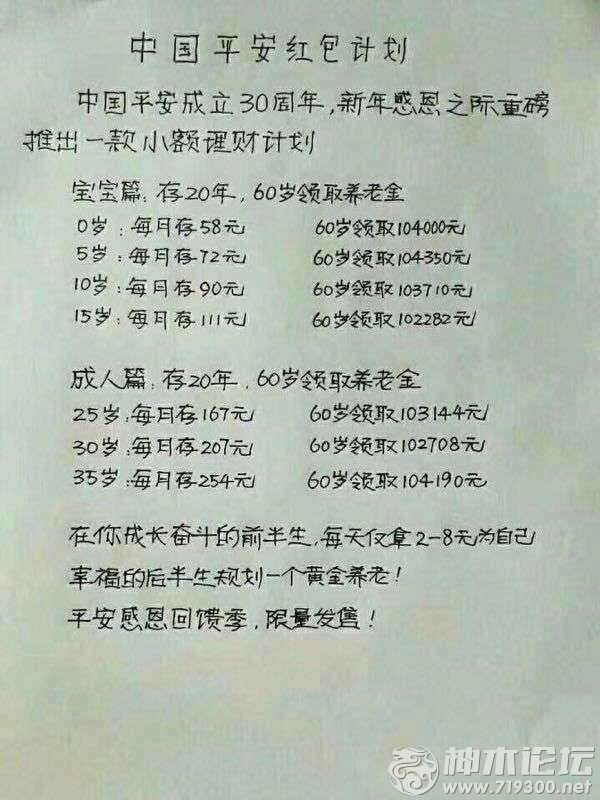 中国平安红包计划
中国平安成立30周年,新年感恩之际重磅
推出一款小额理财计划
宝宝篇:存20年,60岁领取养老金
0岁:每月存58元 60岁领取104000元
5岁:每月存72元 60岁领取104350元
10岁:每月存90元 60岁领取103710元
15岁:每月存111元 60岁领取102282元
成人篇:存20年,60岁领取养老金
25岁:每月存167元 60岁领取103144元
30岁:每月存207元 60岁领取102708元
35岁:每月存254元 60岁领取104190元
在你成长奋斗的前半生,每天仅拿2-8元为自己
幸福的后半生规划一个黄金养老!
平安感恩回馈季,限量发售!
神木论坛
www.719300.net